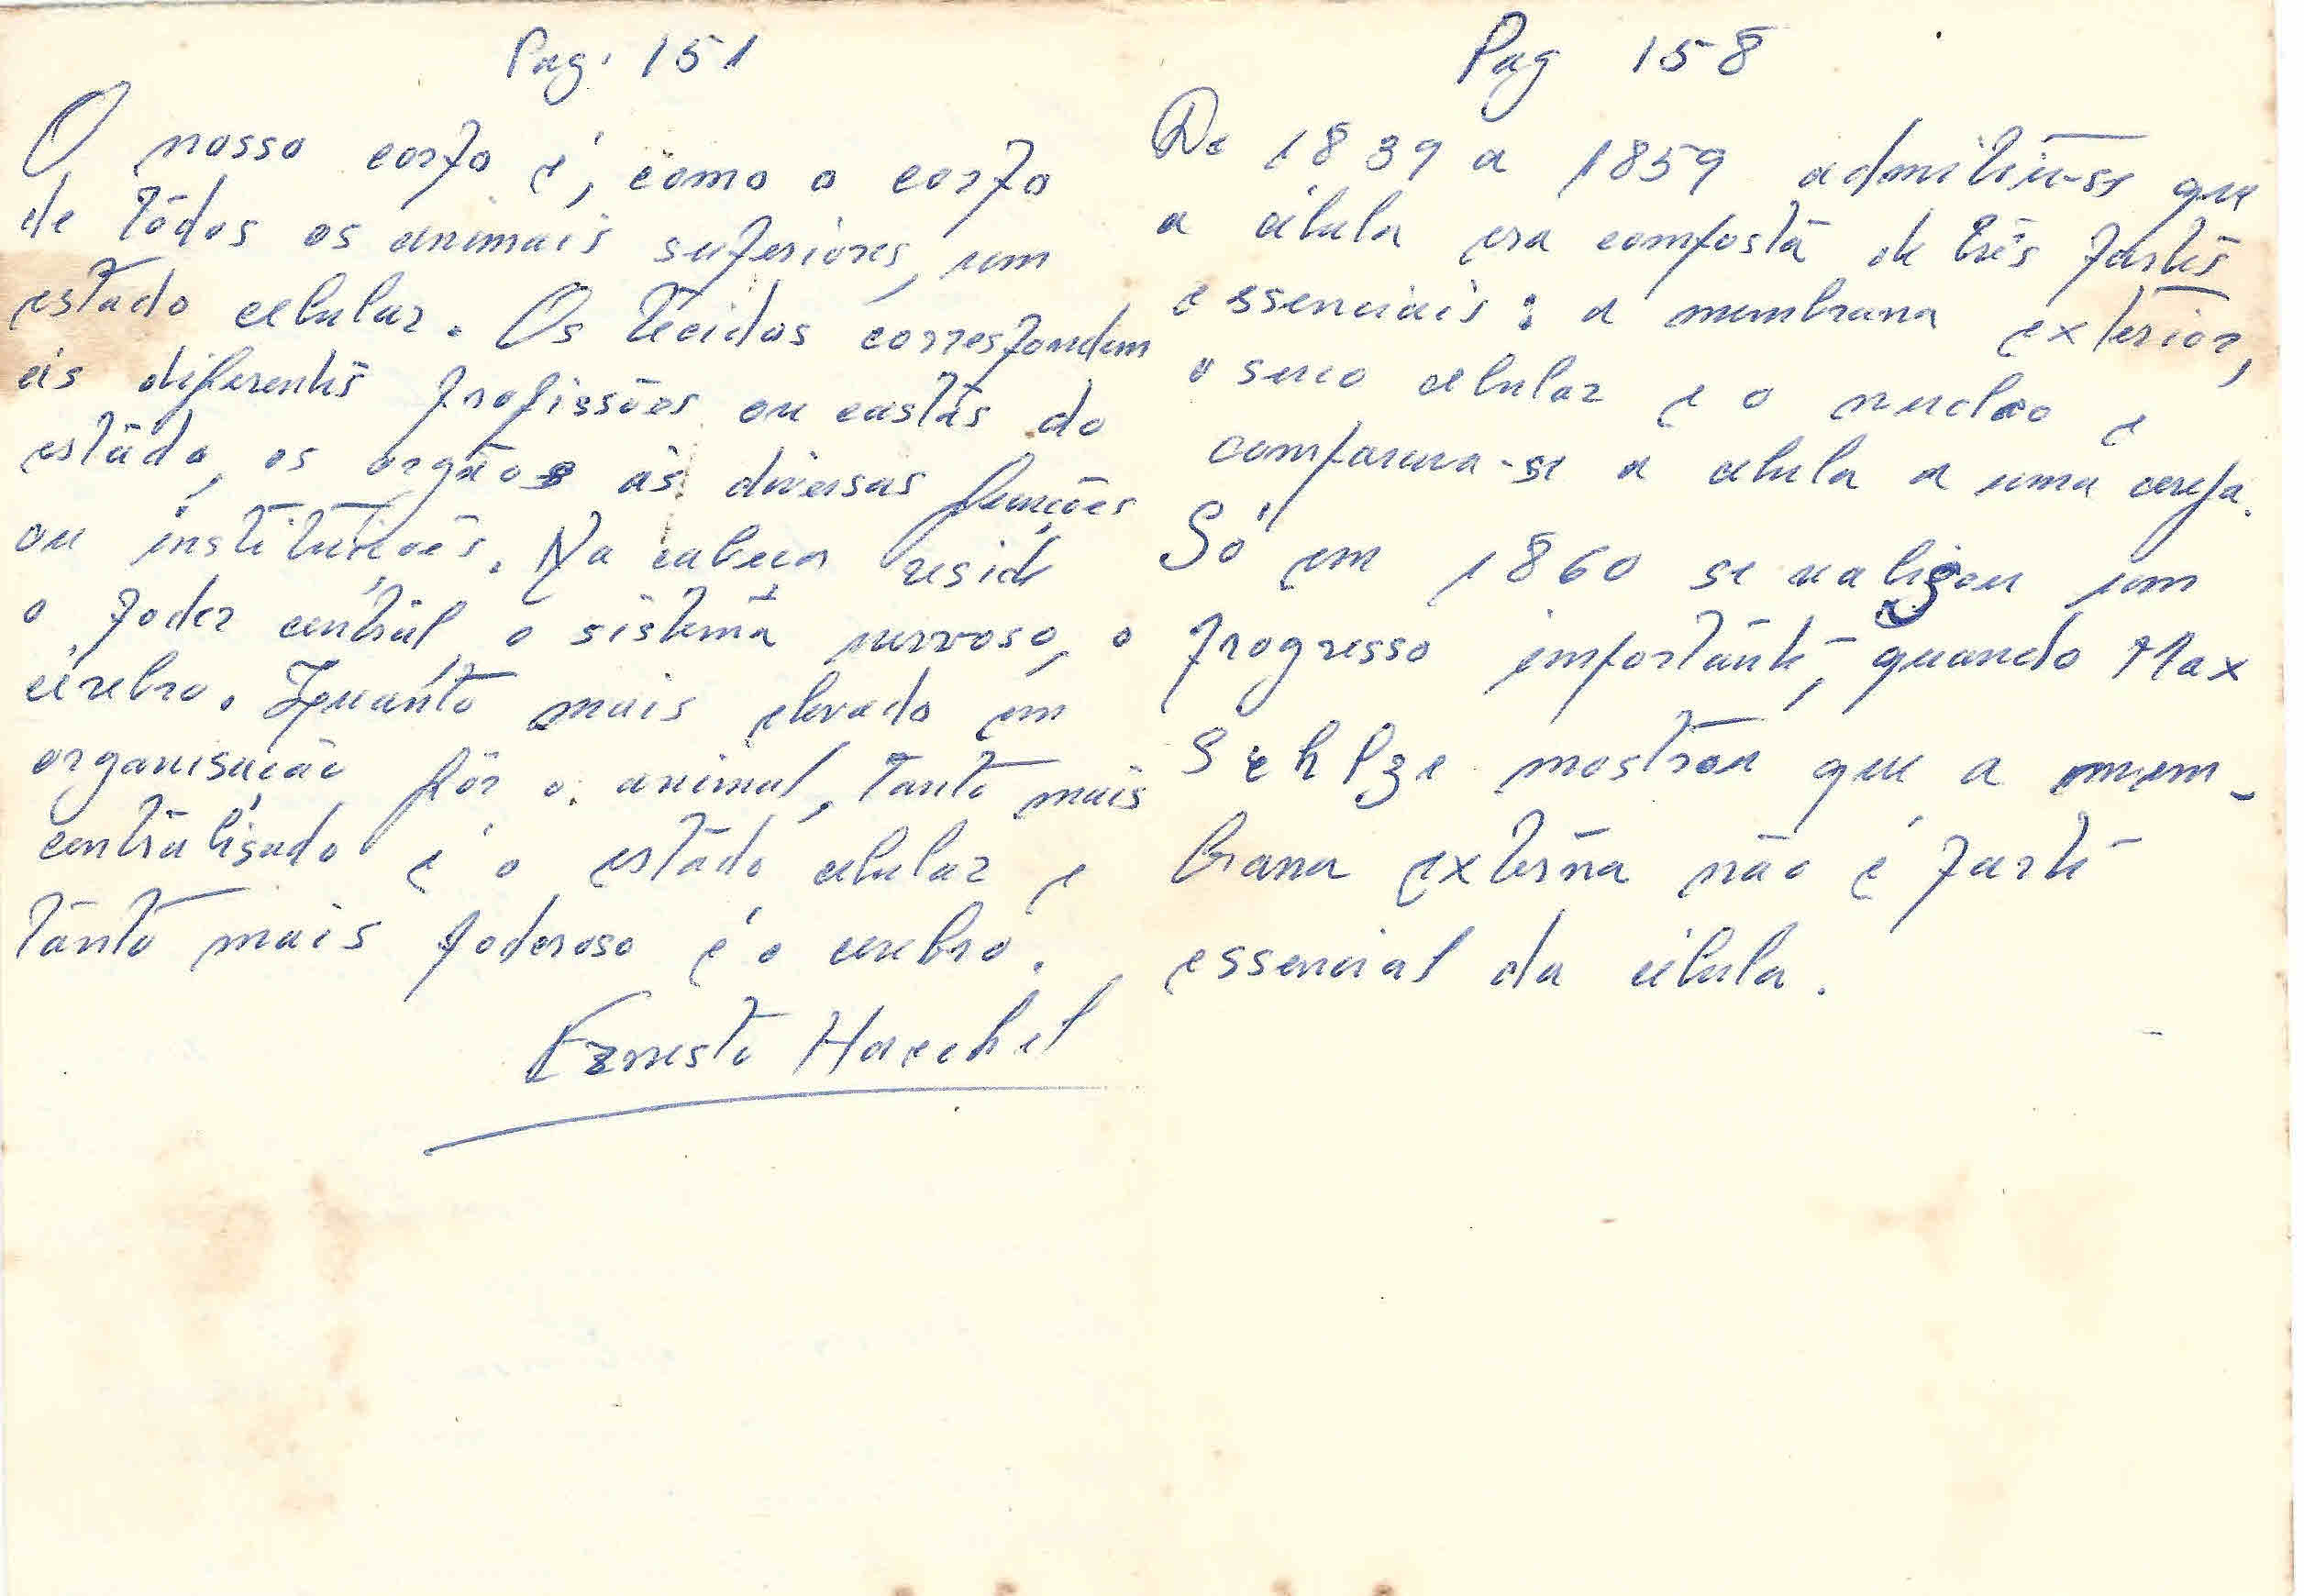 Pag. 151
O nosso corpo é, como o corpo
de tôdos os animais superiores, um
estado celular. Os tecidos correspondem
ás diferentes profissões ou castas do
estado, os orgãos ás diversas funções
ou instituições. Na cabeça reside
o poder central, o sistema nervoso, o
cérebro. Quanto mais elevado em
organisação fôr o animal, tanto mais
centralisado é o estado celular e
tanto mais poderoso é o cerebro.
Ernesto Haeckel
Pag 158
De 1839 a 1859 admitiu-se que
a célula era composta de três partes
essenciais: a membrana exterior,
o suco celular e o nucleo e
comparava-se a celula a uma cereja.
Só em 1860 se realizou um
progresso importante, quando Max
Schlze mostrou que a mem-
brana externa não é parte
essencial da célula.